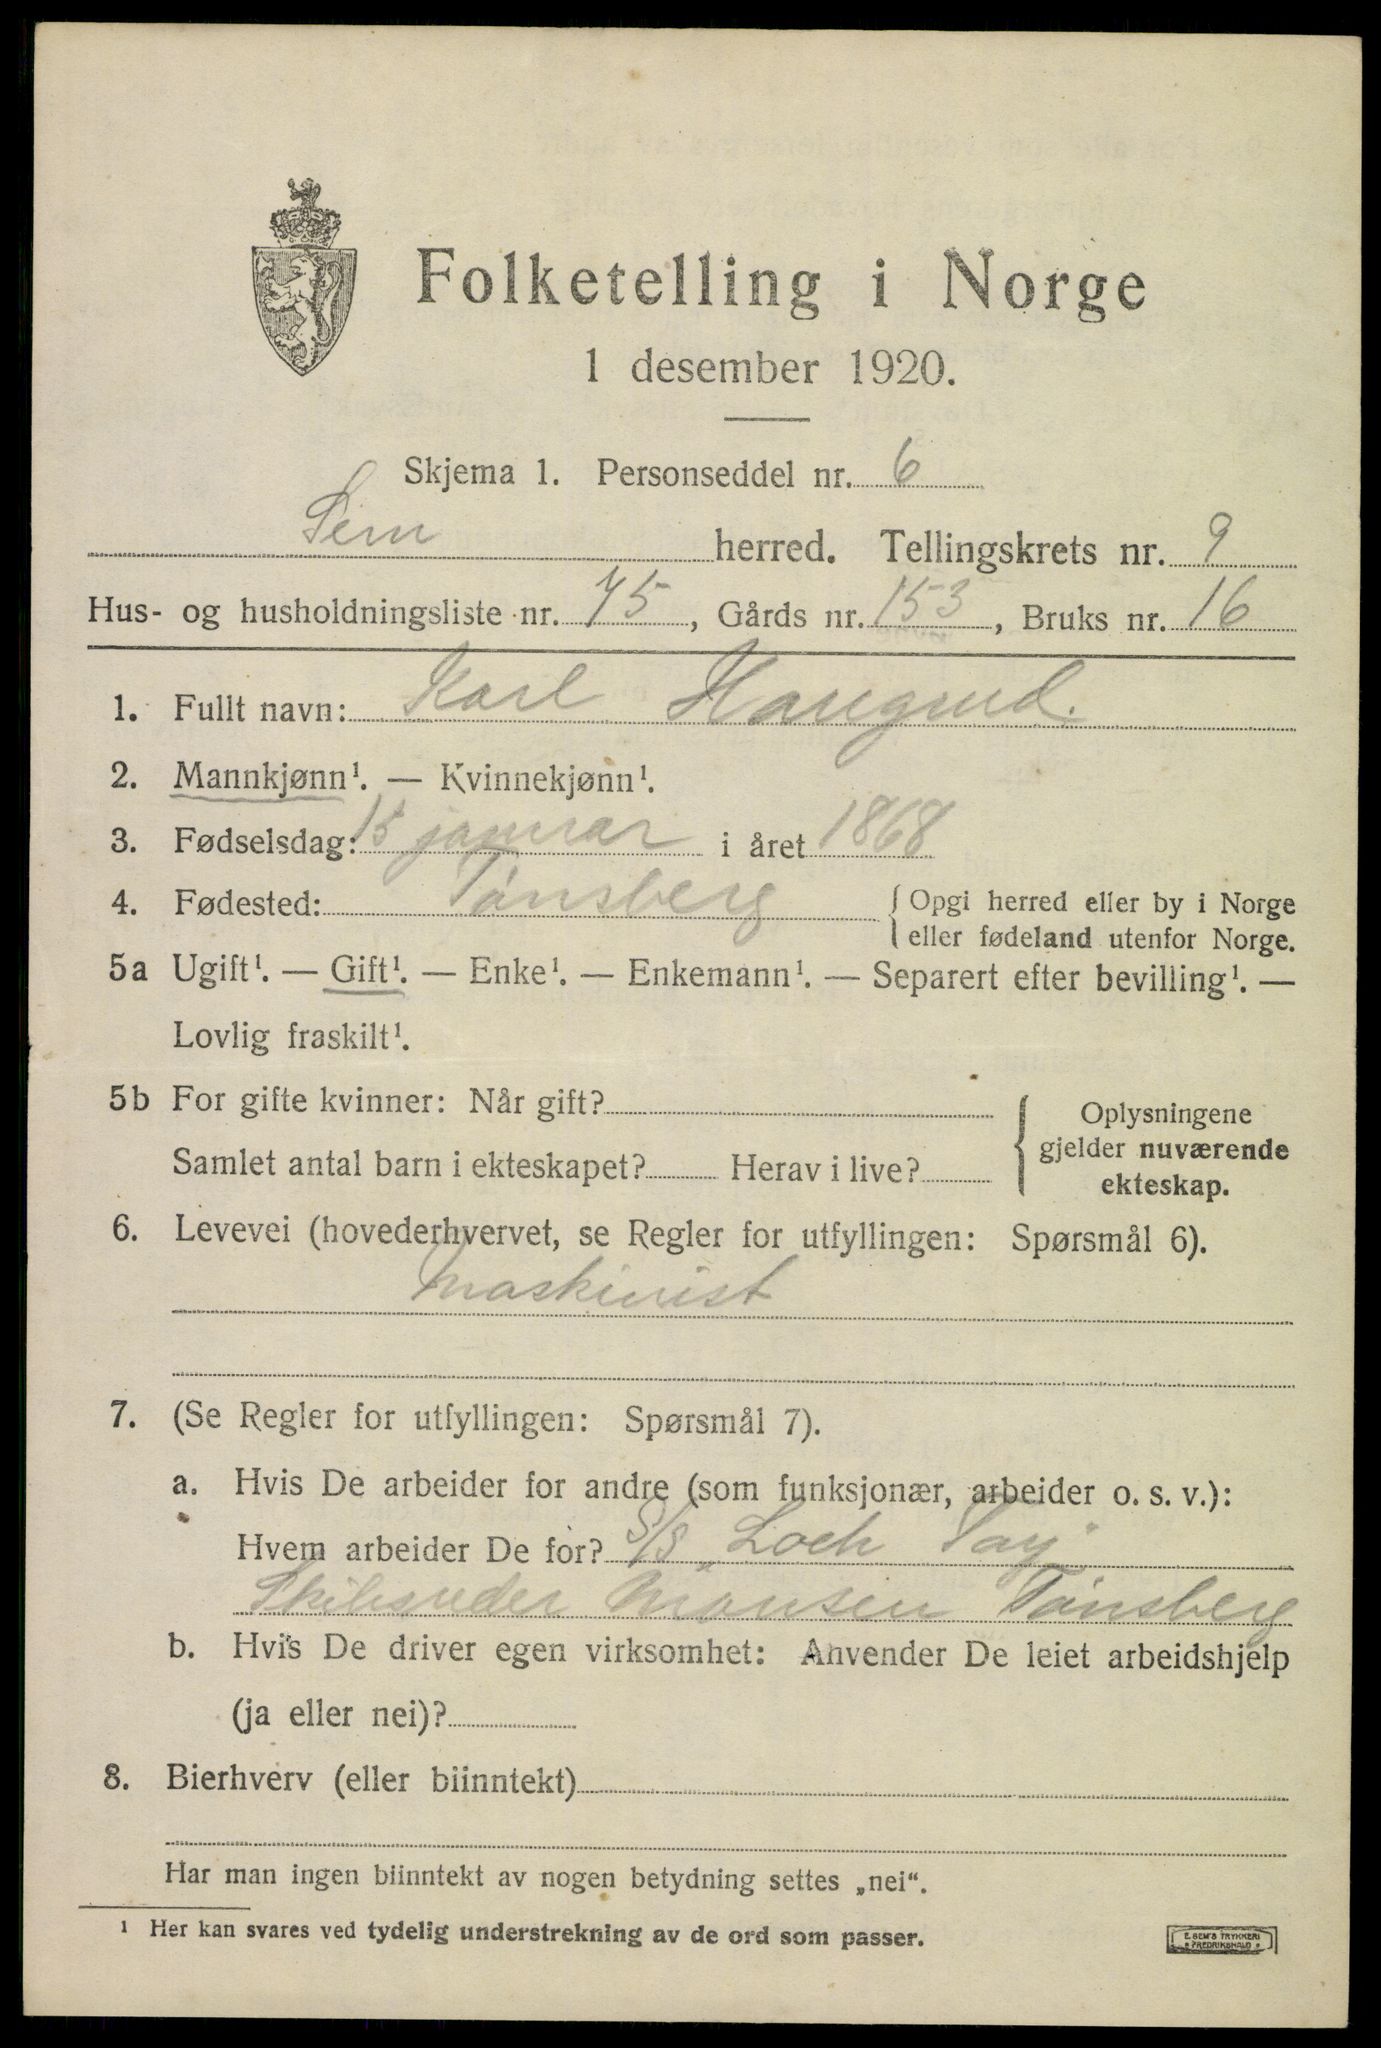 Folketelling i Norge
1 desember 1920.
Skjema 1. Personseddel nr. 6
Sem herred. Tellingskrets nr. 9
Hus- og husholdningsliste nr. 75, Gårds nr. 153, Bruks nr. 16
1. Fullt navn: Karl Haugrud.
2. Mannkjønn¹. — Kvinnekjønn¹.
3. Fødselsdag: 15 januar i året 1868
4. Fødested: Tønsberg { Opgi herred eller by i Norge
eller fødeland utenfor Norge.
5a Ugift¹. — Gift¹. — Enke¹. — Enkemann¹. — Separert efter bevilling¹. —
Lovlig fraskilt¹.
5b For gifte kvinner: Når gift?
Samlet antal barn i ekteskapet? Herav i live?
{ Oplysningene
gjelder nuværende
ekteskap.
6. Levevei (hovederhvervet, se Regler for utfyllingen: Spørsmål 6).
Maskinist
7. (Se Regler for utfyllingen: Spørsmål 7).
a. Hvis De arbeider for andre (som funksjonær, arbeider o. s. v.):
Hvem arbeider De for? S/S „Loch Tay"
Skibsreder Monsen Tønsberg
b. Hvis De driver egen virksomhet: Anvender De leiet arbeidshjelp
(ja eller nei)?
8. Bierhverv (eller biinntekt)
Har man ingen biinntekt av nogen betydning settes „nei".
¹ Her kan svares ved tydelig understrekning av de ord som passer.
E. SEM'S TRYKKERI
• FREDRIKSHALD •